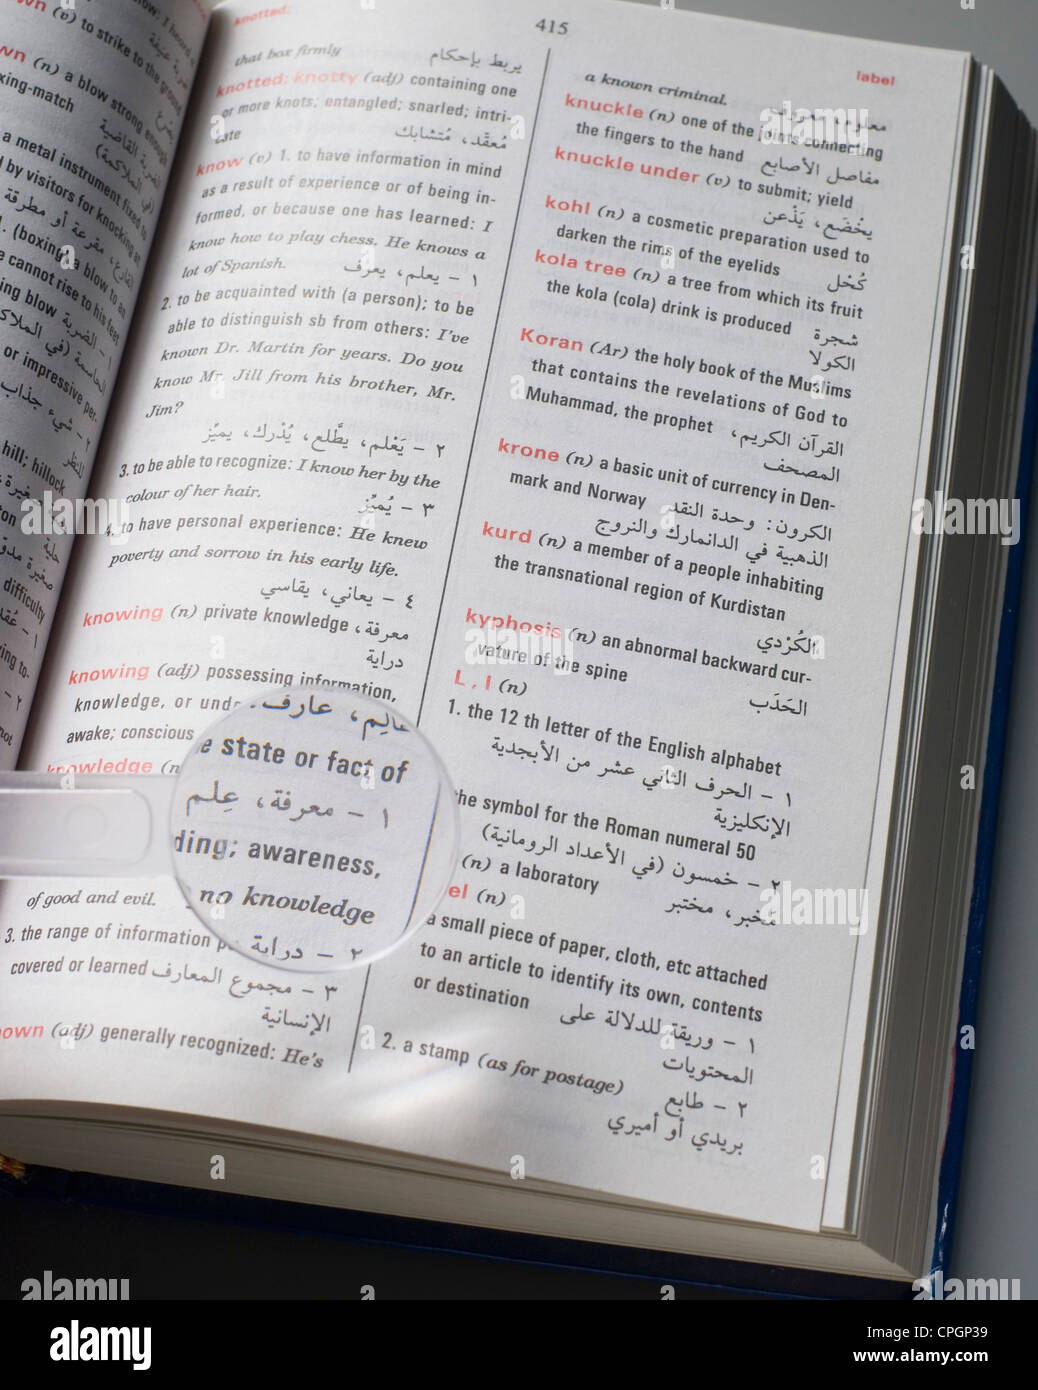 knotted:
415
label
that box firmly يربط بإحكام
knotted; knotty (adj) containing one
or more knots; entangled; snarled; intri-
cate مُعقَّد، مُتشابك
know (v) 1. to have information in mind
as a result of experience or of being in-
formed, or because one has learned: I
know how to play chess. He knows a
lot of Spanish. ١ – يعلم، يعرف
2. to be acquainted with (a person); to be
able to distinguish sb from others: I've
known Dr. Martin for years. Do you
know Mr. Jill from his brother, Mr.
Jim?
٢ – يَعْلم، يطَّلع، يُدْرك، يميِّز
3. to be able to recognize: I know her by the
colour of her hair. ٣ – يُميِّز
4. to have personal experience: He knew
poverty and sorrow in his early life.
٤ – يعاني، يقاسي
knowing (n) private knowledge معرفة،
دراية
knowing (adj) possessing information,
knowledge, or und
awake; conscious عالِم، عارف
knowledge (n
e state or fact of
١ – معرفة، عِلم
ding; awareness,
no knowledge
of good and evil. ٢ – دراية
3. the range of information p
covered or learned ٣ – مجموع المعارف
الإنسانية
nown (adj) generally recognized: He's
a known criminal. معلوم، معروف
knuckle (n) one of the joints connecting
the fingers to the hand مفاصل الأصابع
knuckle under (v) to submit; yield
يخْضَع، يَذْعن
kohl (n) a cosmetic preparation used to
darken the rims of the eyelids كُحْل
kola tree (n) a tree from which its fruit
the kola (cola) drink is produced شجرة
الكولا
Koran (Ar) the holy book of the Muslims
that contains the revelations of God to
Muhammad, the prophet القرآن الكريم،
المصحف
krone (n) a basic unit of currency in Den-
mark and Norway الكرون: وحدة النقد
الذهبية في الدانمارك والنروج
kurd (n) a member of a people inhabiting
the transnational region of Kurdistan
الكُرْدي
kyphosis (n) an abnormal backward cur-
vature of the spine الحَدَب
L , l (n)
1. the 12 th letter of the English alphabet
١ – الحرف الثاني عشر من الأبجدية
الإنكليزية
the symbol for the Roman numeral 50
٢ – خمسون (في الأعداد الرومانية)
(n) a laboratory مَخبر، مختبر
el (n)
a small piece of paper, cloth, etc attached
to an article to identify its own, contents
or destination ١ – وريقة للدلالة على
المحتويات
2. a stamp (as for postage) ٢ – طابع
بريدي أو أميري
alamy
Image ID: CPGP39
www.alamy.com